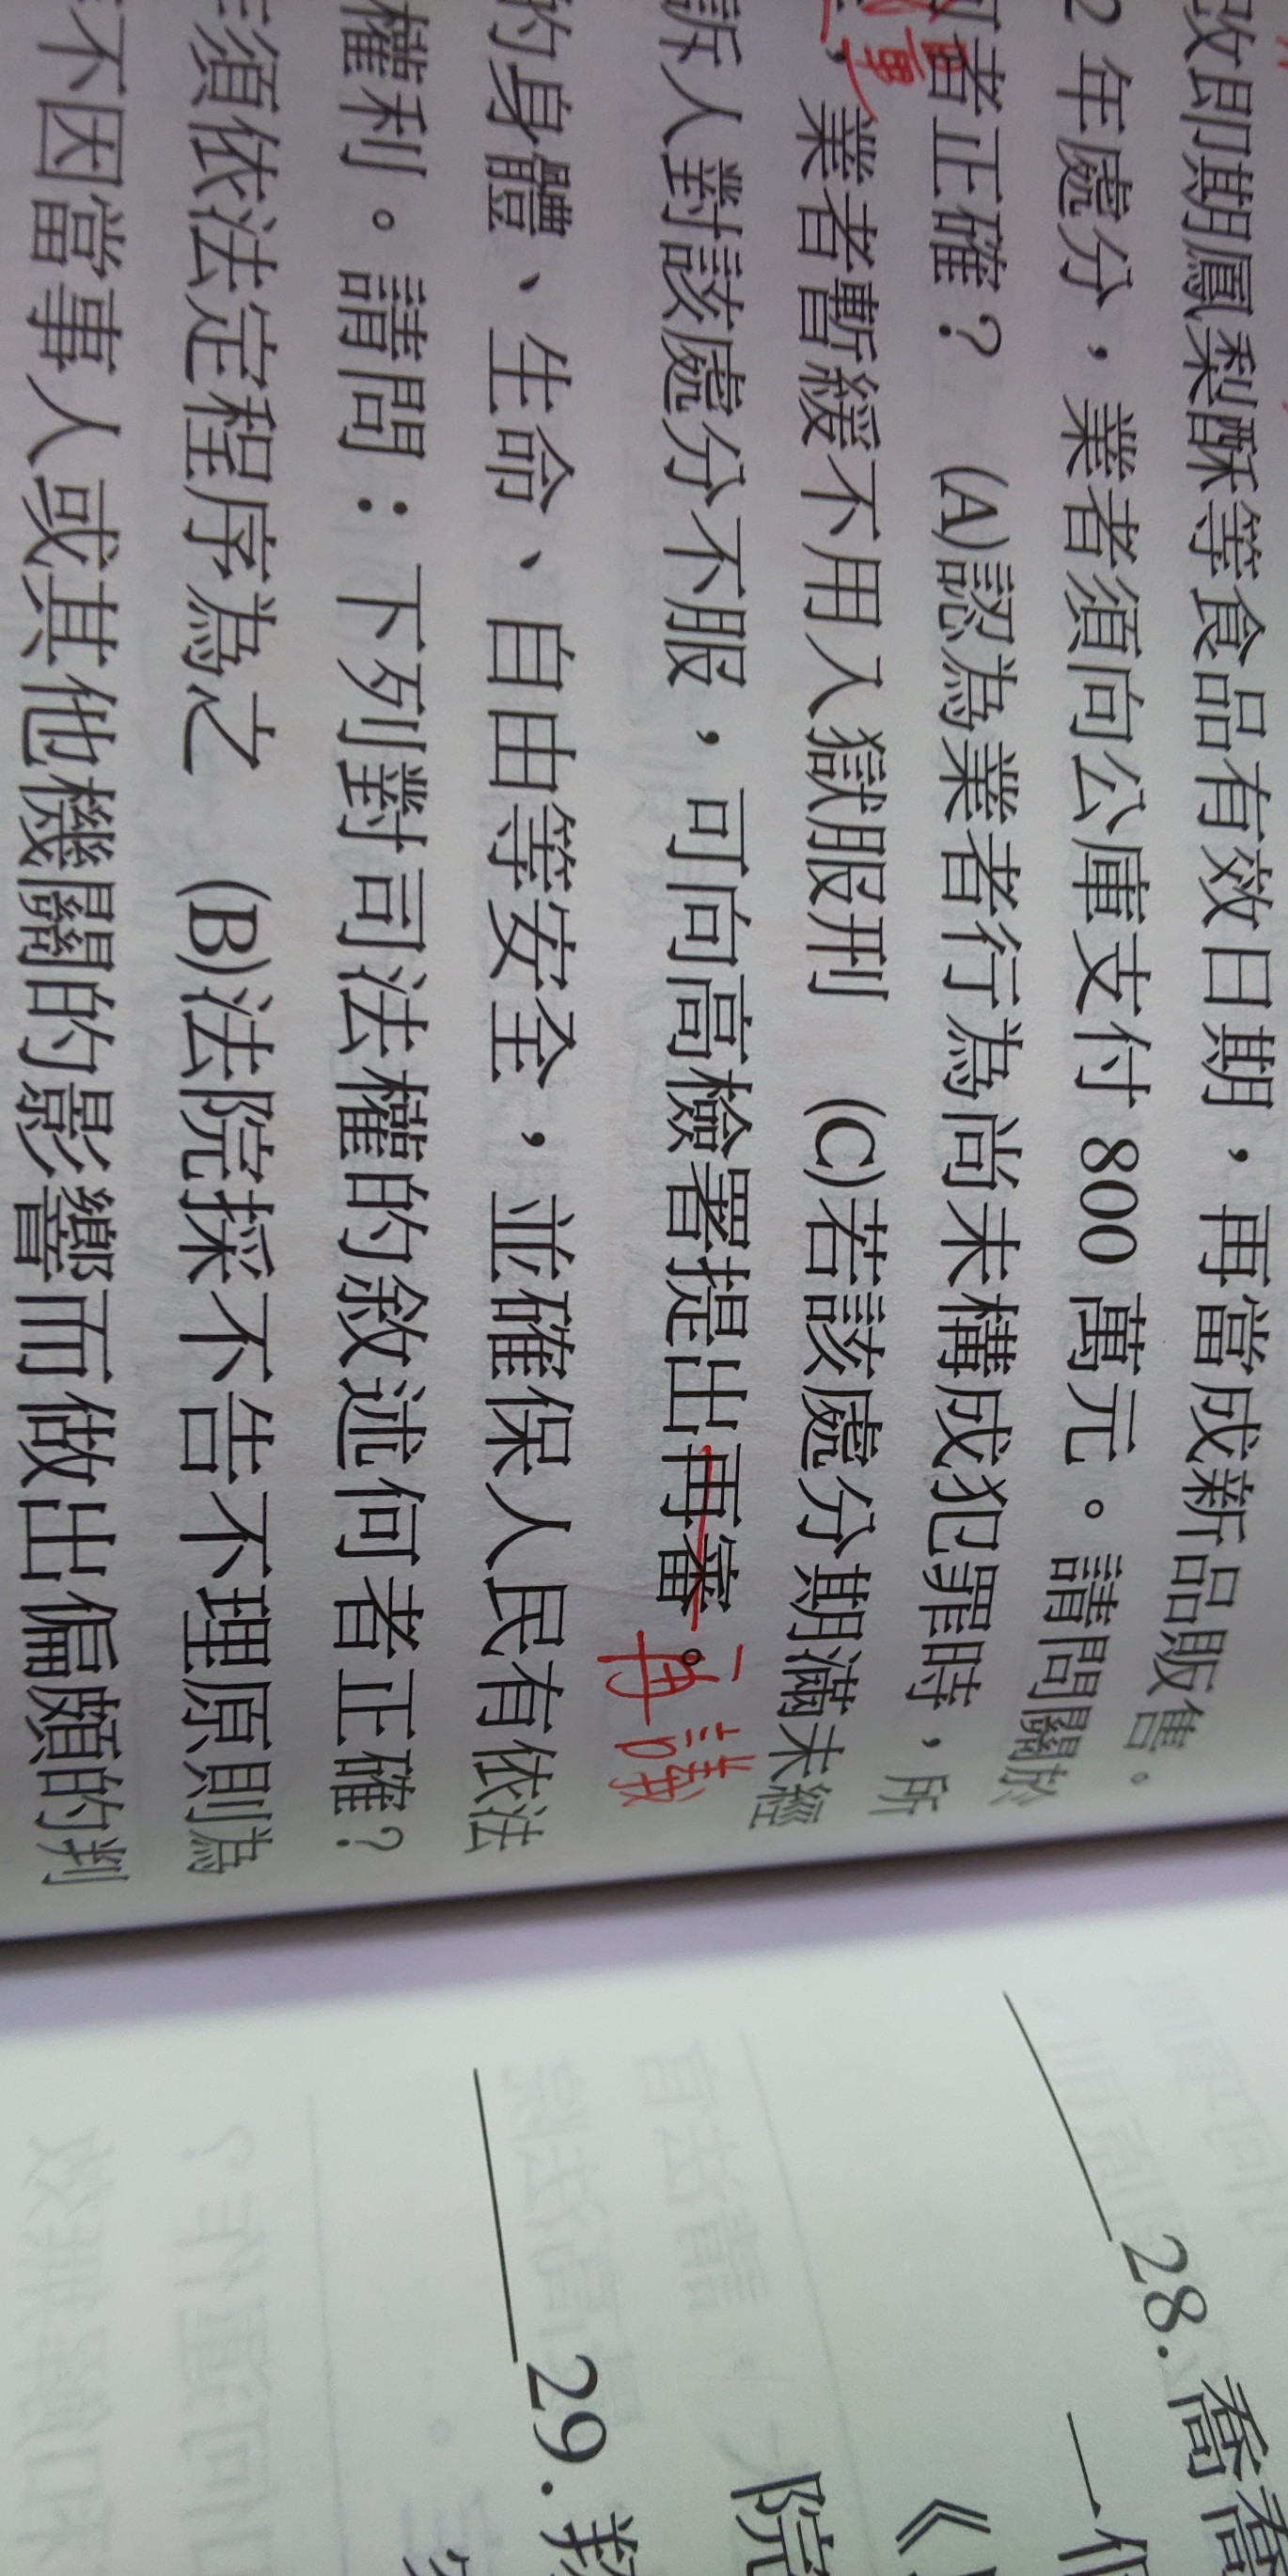 改即期鳳梨酥等食品有效日期，再當成新品販售。
2 年處分，業者須向公庫支付 800 萬元。請問關於
者正確？ (A)認為業者行為尚未構成犯罪時，所
，業者暫緩不用入獄服刑 (C)若該處分期滿未經
訴人對該處分不服，可向高檢署提出再審。再議
的身體、生命、自由等安全，並確保人民有依法
權利。請問：下列對司法權的敘述何者正確？
須依法定程序為之 (B)法院採不告不理原則為
不因當事人或其他機關的影響而做出偏頗的判
28. 喬喬
一
《
院
29. 翔